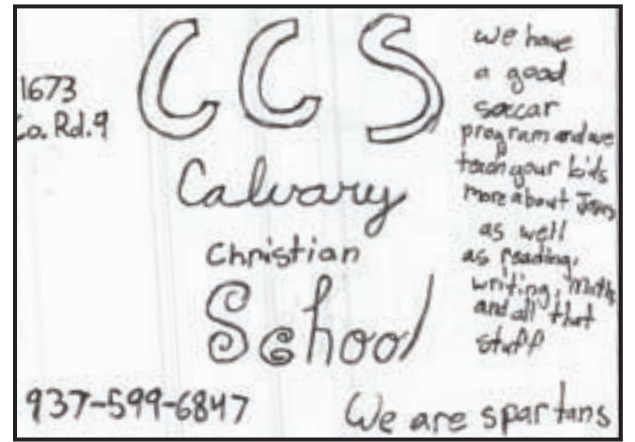 CCS
1673
Co. Rd. 9
Calvary
Christian
School
we have
a good
soccar
program and we
teach your kids
more about Jesus
as well
as reading,
writing, math,
and all that
stuff
937-599-6847
We are spartans